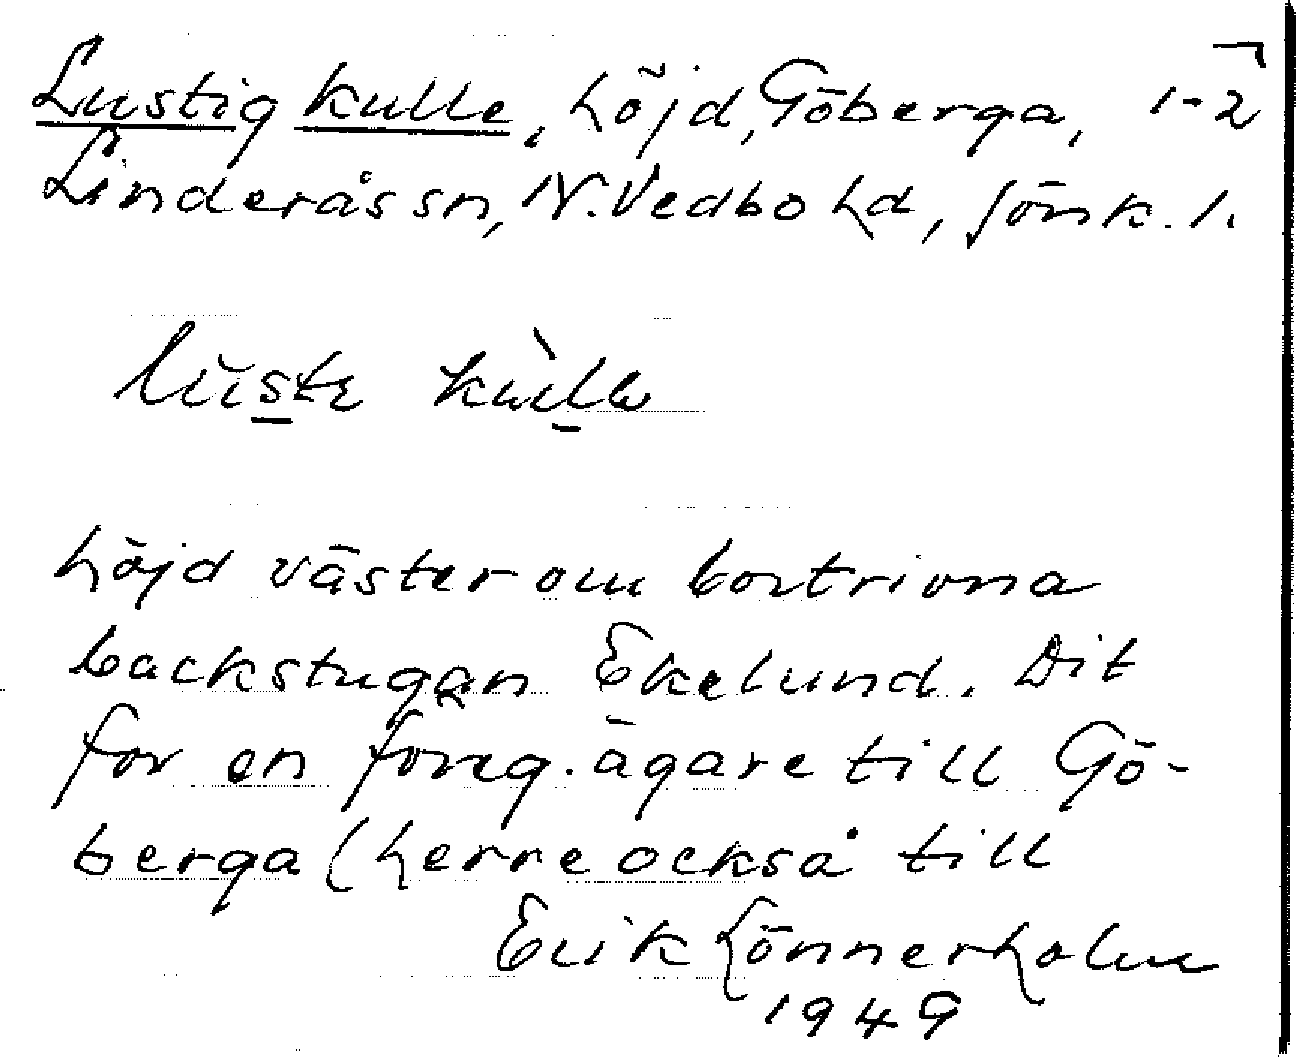 Lustig kulle, höjd, Göberga, 1-2
Linderås sn, N. Vedbo hd, Jönk. l.
luste kulle
höjd väster om bortrivna
backstugan Ekelund. Dit
for en föreg. ägare till Gö-
berga (herre också till
Erik Lönnerholm
1949